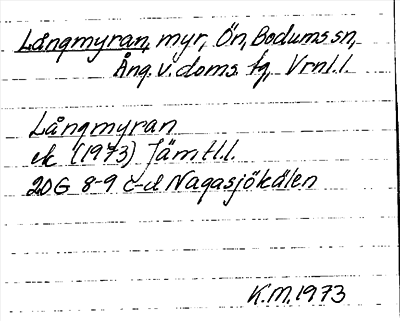 Långmyran, myr, Ön, Bodums sn,
Ång. v. doms. tg, Vrnl. l.
Långmyran
ek (1973) Jämtl. l.
20G 8-9 c-d Nagasjökälen
K.M. 1973